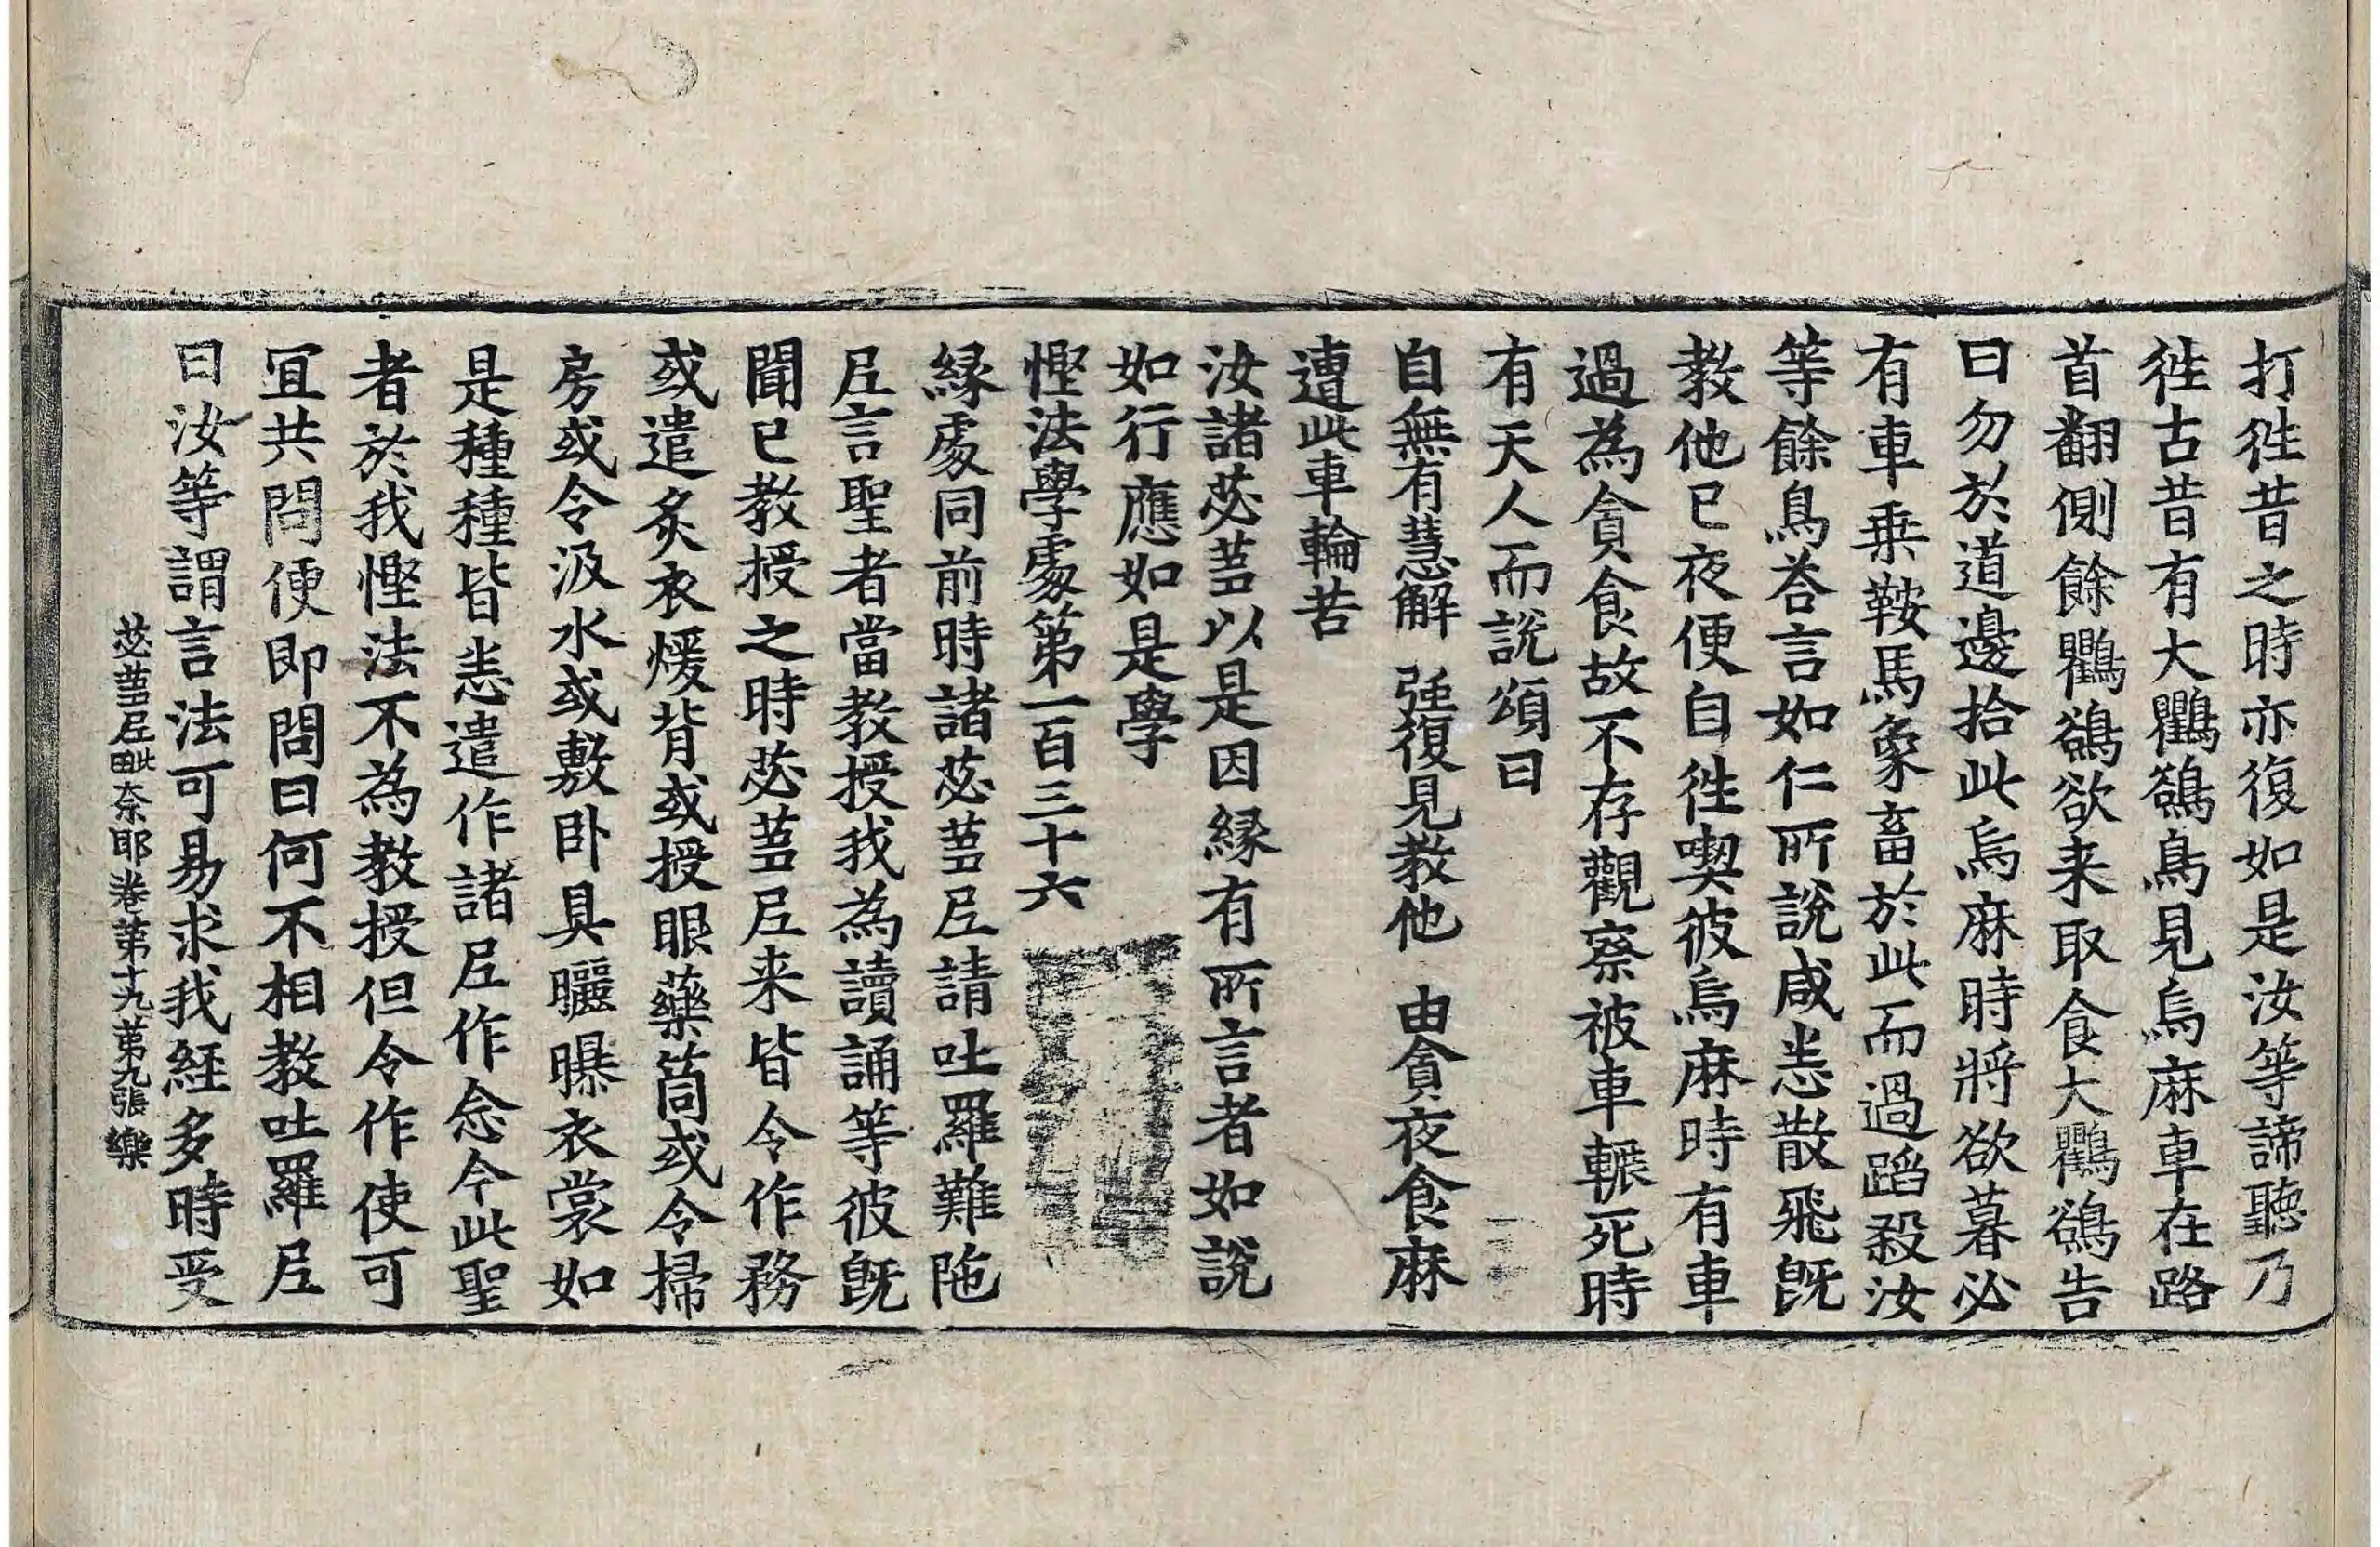 打徃昔之時亦復如是汝等諦聽乃
徃古昔有大鸜鵒鳥見烏麻車在路
首翻側餘鸜鵒欲来取食大鸜鵒告
曰勿於道邊拾此烏麻時將欲暮必
有車乗鞍馬象畜於此而過蹈殺汝
等餘鳥荅言如仁所說咸恙散飛旣
教他已夜便自徃喫彼烏麻時有車
過為貪食故不存觀察被車輾死時
有天人而說頌曰
自無有慧解 強復見教他 由貪夜食麻
遭此車輪苦
汝諸苾蒭以是因縁有所言者如說
如行應如是學
慳法學處第一百三十六
縁處同前時諸苾蒭尼請吐羅難陁
尼言聖者當教授我為讀誦等彼旣
聞已教授之時苾蒭尼来皆令作務
或遣炙衣煖背或授眼藥筒或令掃
房或令汲水或敷卧具曬曝衣裳如
是種種皆恙遣作諸尼作念今此聖
者於我慳法不為教授但令作使可
冝共問便即問曰何不相教吐羅尼
曰汝等謂言法可易求我経多時受
苾蒭尼毗奈耶卷第十九第九張 樂